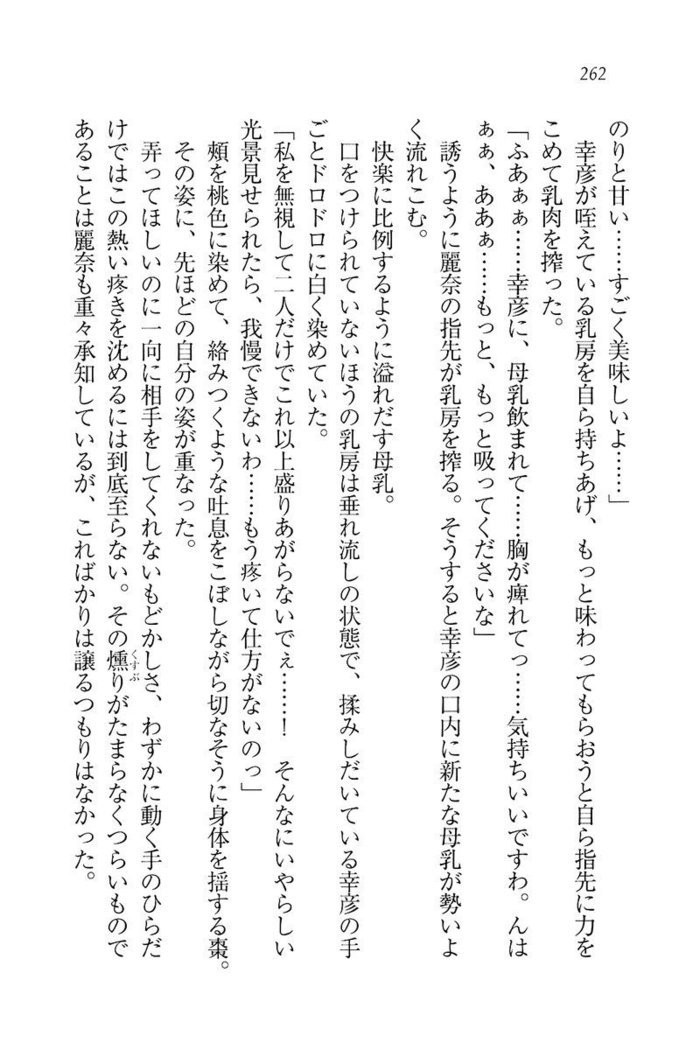 262
のりと甘い……すごく美味しいよ……」
幸彦が咥えている乳房を自ら持ちあげ、もっと味わってもらおうと自ら指先に力を
こめて乳肉を搾った。
「ふあぁぁ……幸彦に、母乳飲まれて……胸が痺れてっ……気持ちいいですわ。んは
ぁぁ、ああぁ……もっと、もっと吸ってくださいな」
誘うように麗奈の指先が乳房を搾る。そうすると幸彦の口内に新たな母乳が勢いよ
く流れこむ。
快楽に比例するように溢れだす母乳。
口をつけられていないほうの乳房は垂れ流しの状態で、揉みしだいている幸彦の手
ごとドロドロに白く染めていた。
「私を無視して二人だけでこれ以上盛りあがらないでぇ……！　そんなにいやらしい
光景見せられたら、我慢できないわ……もう疼いて仕方がないのっ」
頬を桃色に染めて、絡みつくような吐息をこぼしながら切なそうに身体を揺する棗。
その姿に、先ほどの自分の姿が重なった。
弄ってほしいのに一向に相手をしてくれないもどかしさ、わずかに動く手のひらだ
けではこの熱い疼きを沈めるには到底至らない。その燻りがたまらなくつらいもので
くすぶ
あることは麗奈も重々承知しているが、こればかりは譲るつもりはなかった。